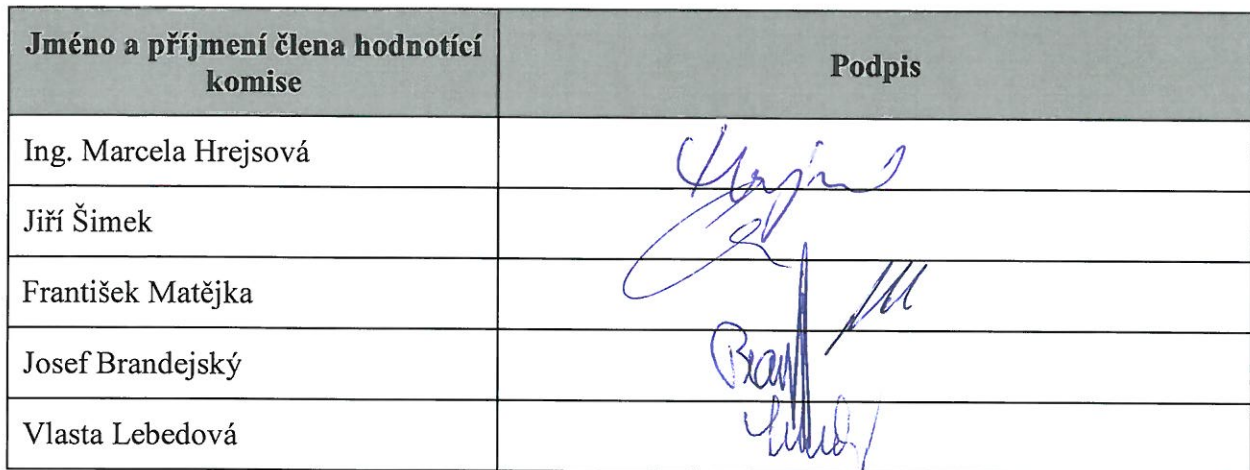 Jméno a příjmení člena hodnotící
komise
Podpis
Ing. Marcela Hrejsová
Jiří Šimek
František Matějka
Josef Brandejský
Vlasta Lebedová